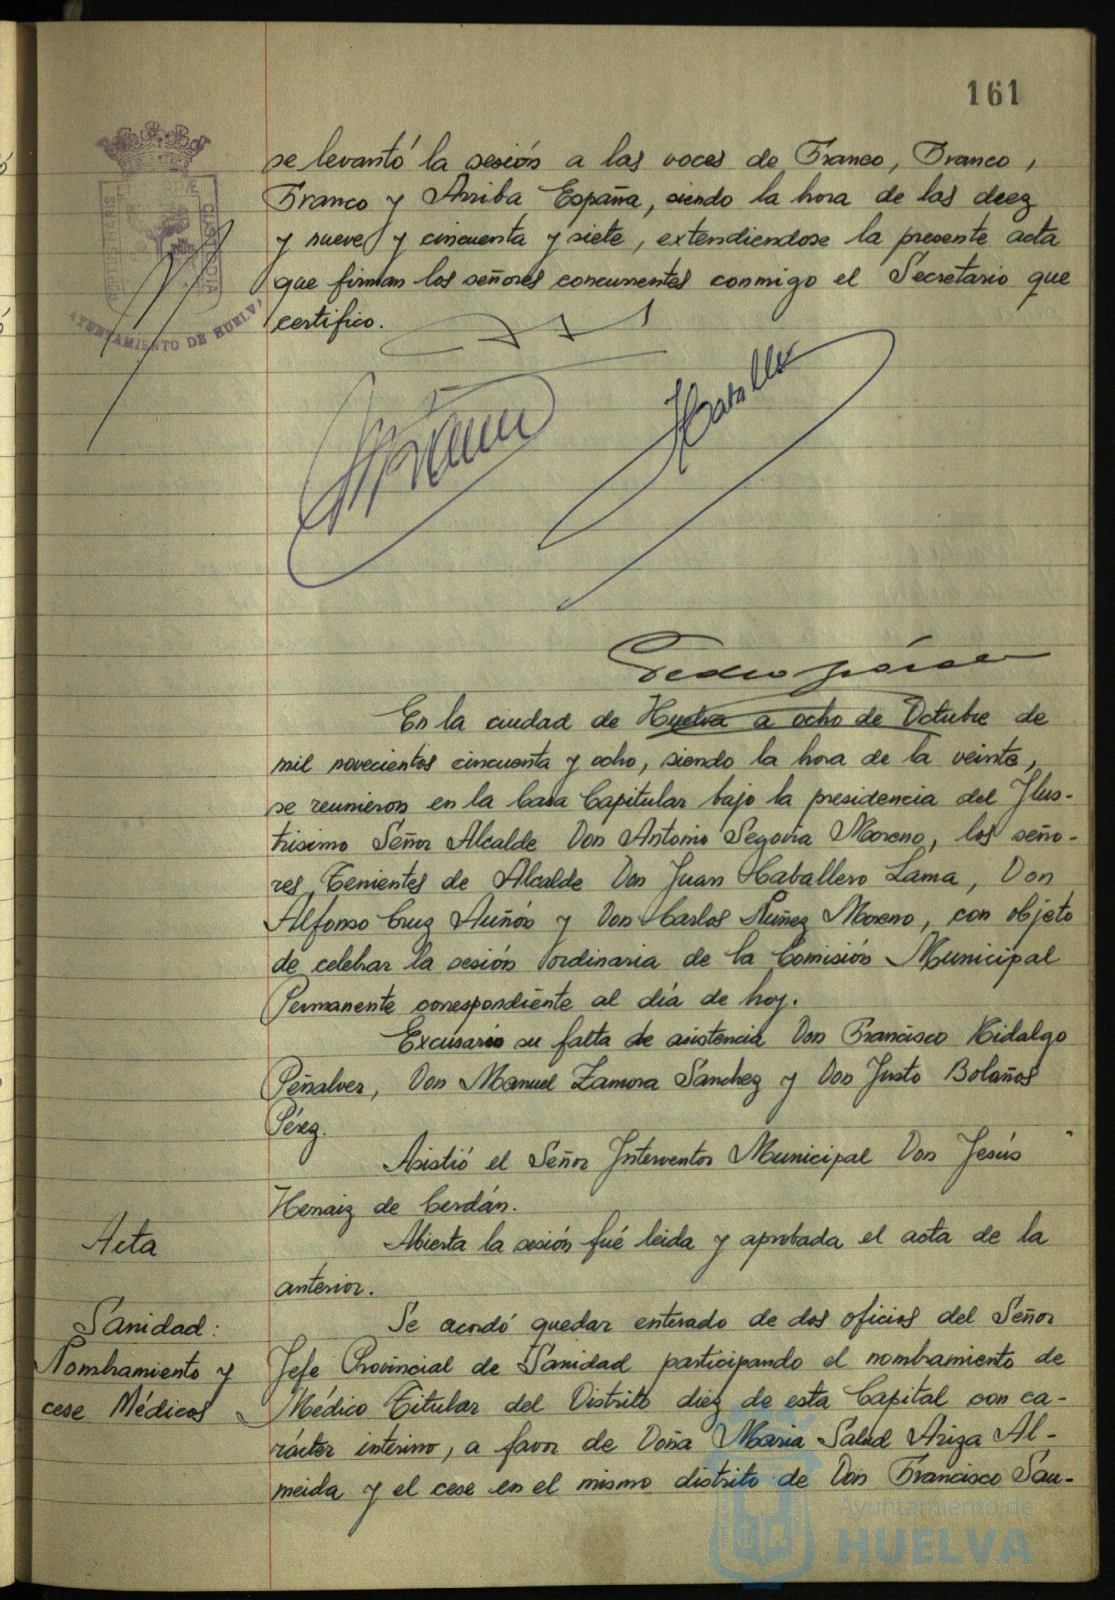 161
se levantó la sesión a las voces de Franco, Franco,
Franco y Arriba España, siendo la hora de las deez
y nueve y cincuenta y siete, extendiendose la presente acta
que firman los señores concurrentes conmigo el Secretario que
certifico.
AYUNTAMIENTO DE HUELVA
En la ciudad de Huelva a ocho de Octubre de
mil novecientos cincuenta y ocho, siendo la hora de la veinte,
se reunieron en la Casa Capitular bajo la presidencia del Ilus-
trisimo Señor Alcalde Don Antonio Segovia Moreno, los seño-
res Tenientes de Alcalde Don Juan Caballero Lama, Don
Alfonso Cruz Auñón y Don Carlos Núñez Moreno, con objeto
de celebrar la sesión ordinaria de la Comisión Municipal
Permanente correspondiente al día de hoy.
Excusaron su falta de asistencia Don Francisco Hidalgo
Peñalver, Don Manuel Zamora Sánchez y Don Justo Bolaños
Pérez.
Asistió el Señor Interventor Municipal Don Jesús
Henaiz de Cerdán.
Acta
Abierta la sesión fué leida y aprobada el acta de la
anterior.
Sanidad:
Nombramiento y
cese Médicos
Se acordó quedar enterado de dos oficios del Señor
Jefe Provincial de Sanidad participando el nombramiento de
Médico Titular del Distrito diez de esta Capital con ca-
rácter interino, a favor de Doña Maria Salud Ariza Al-
meida y el cese en el mismo distrito de Don Francisco Sau-
Ayuntamiento de
HUELVA